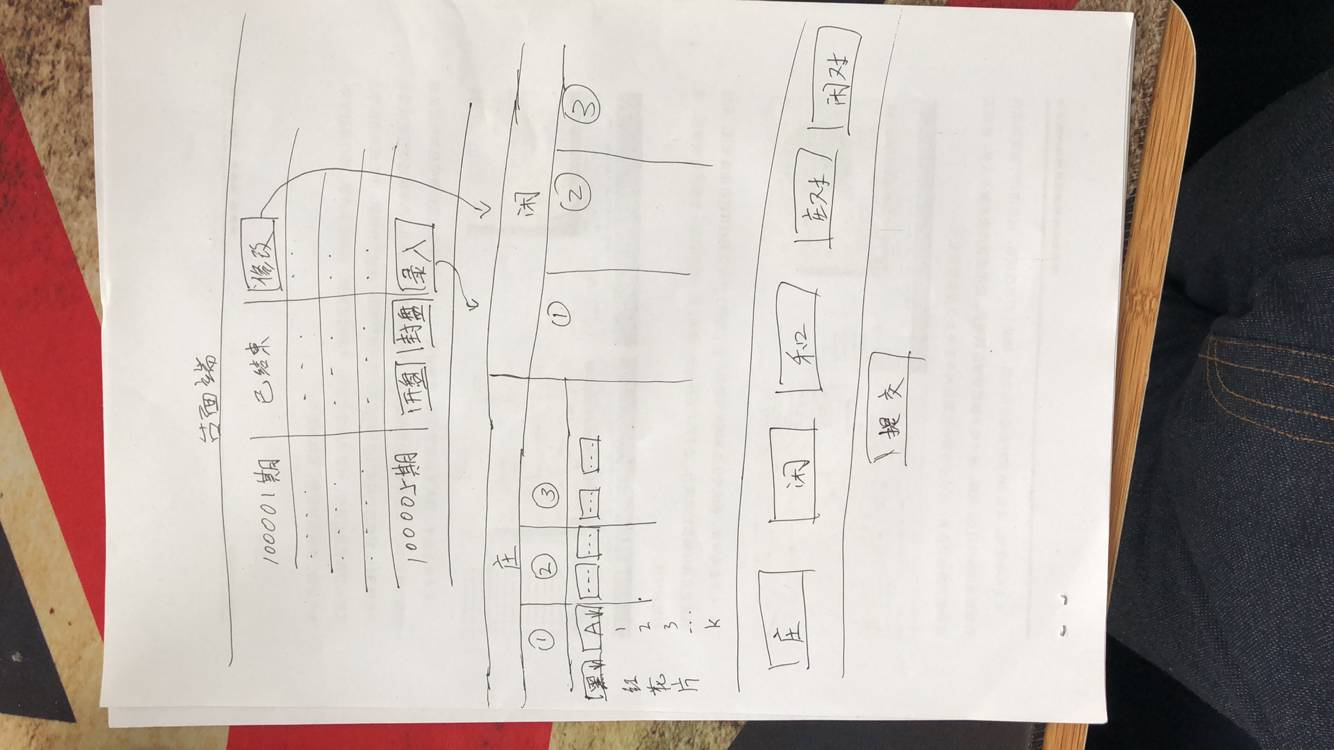 台面端
100001期 已结束 修改
100005期 开盘 封盘 录入
庄 闲
① ② ③ ① ② ③
黑 A
红 1
花 2
片 3
... K
庄 闲 和 庄对 闲对
提交